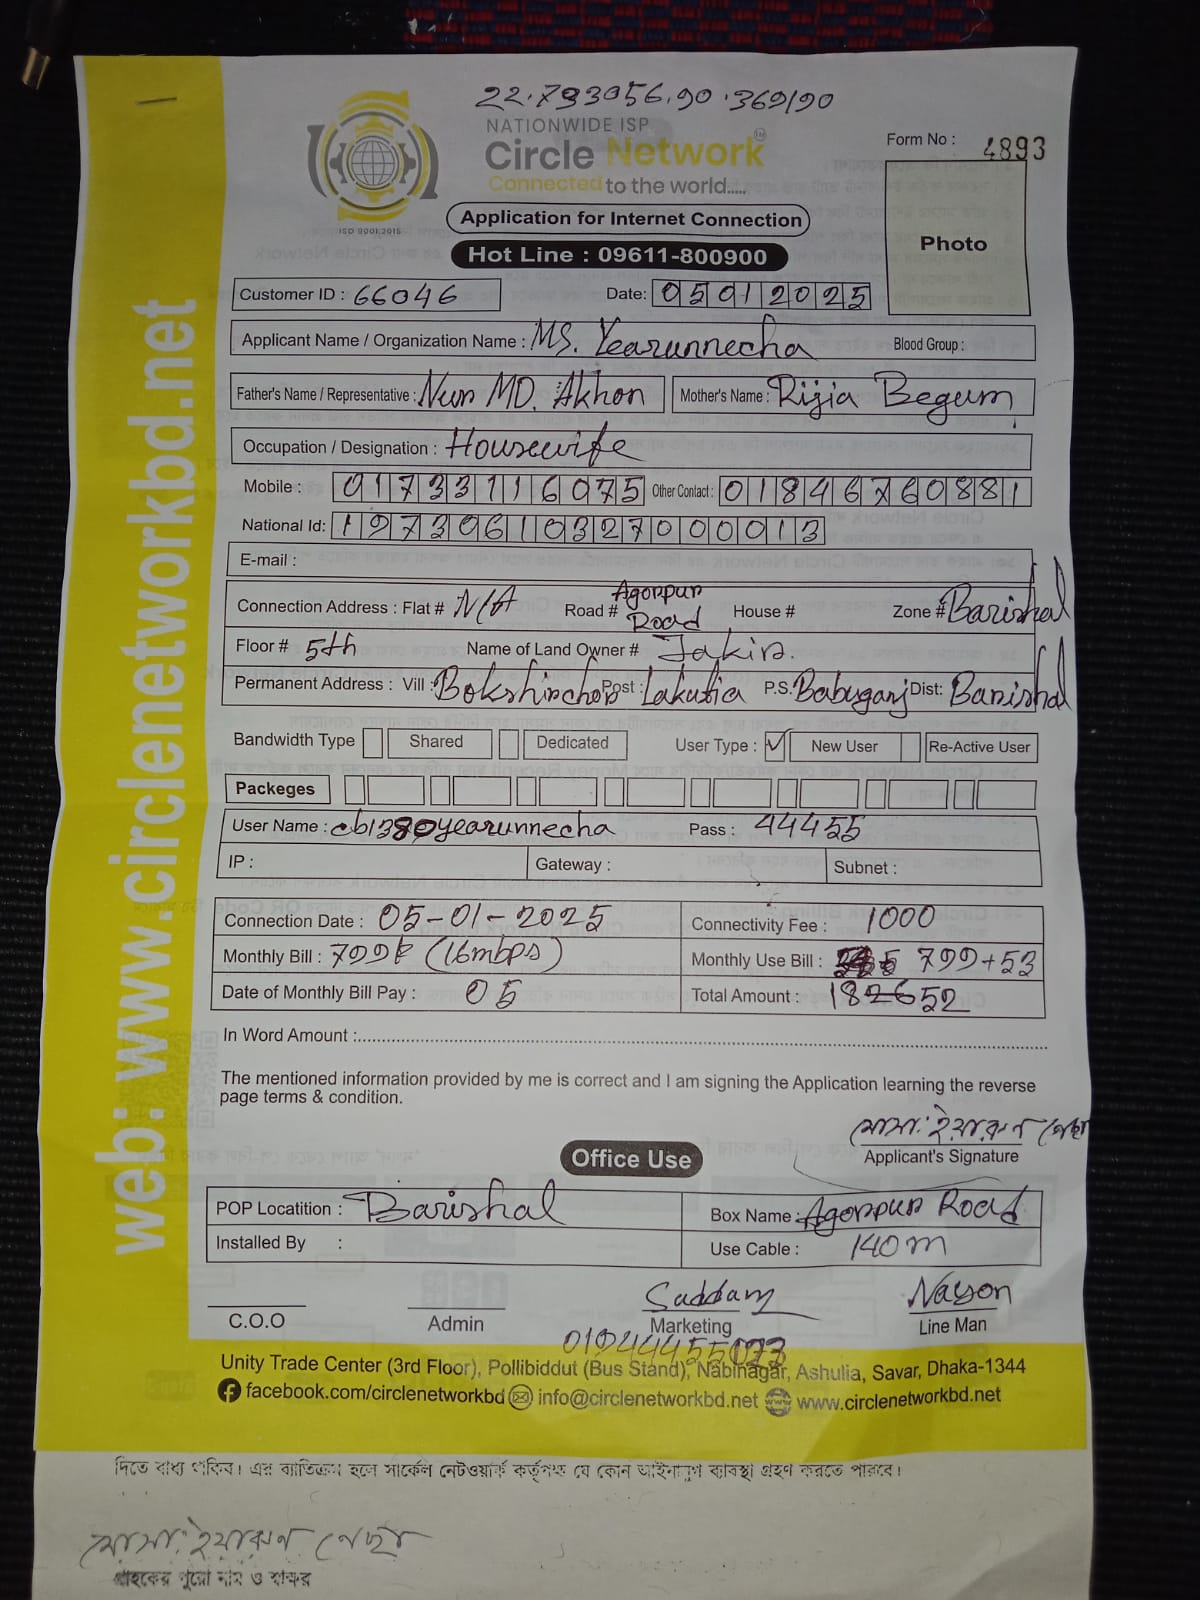 22.793056,90.369190
NATIONWIDE ISP
Circle Network
Connected to the world.....
ISO 9001:2015
Form No : 4893
Photo
Application for Internet Connection
Hot Line : 09611-800900
Customer ID : 66046 Date: 05012025
Applicant Name / Organization Name : MS. Yearunnecha Blood Group :
Father's Name / Representative : Nur MD. Akhon Mother's Name : Rijia Begum
Occupation / Designation : Housewife
Mobile : 01733116075 Other Contact : 01846760881
National Id: 19730610327000013
E-mail :
Connection Address : Flat # N/A Road # Agorpur Road House # Zone # Barishal
Floor # 5th Name of Land Owner # Jakir.
Permanent Address : Vill : Post : Lakutia P.S. Babuganj Dist: Barishal
Bandwidth Type Shared Dedicated User Type : ✓ New User Re-Active User
Packeges
User Name : cb1380yearunnecha Pass : 44455
IP : Gateway : Subnet :
Connection Date : 05-01-2025 Connectivity Fee : 1000
Monthly Bill : 799৳ (16mbps) Monthly Use Bill : 799+53
Date of Monthly Bill Pay : 05 Total Amount :
In Word Amount :
The mentioned information provided by me is correct and I am signing the Application learning the reverse
page terms & condition.
মোসা: ইয়ারুন নেছা
Applicant's Signature
Office Use
POP Locatition : Barishal Box Name : Agorpur Road
Installed By : Use Cable : 140m
Saddam Nayon
C.O.O Admin Marketing Line Man
Unity Trade Center (3rd Floor), Pollibiddut (Bus Stand), Nabinagar, Ashulia, Savar, Dhaka-1344
facebook.com/circlenetworkbd info@circlenetworkbd.net www.circlenetworkbd.net
web: www.circlenetworkbd.net
দিতে বাধ্য থাকিব। এর ব্যতিক্রম হলে সার্কেল নেটওয়ার্ক কর্তৃপক্ষ যে কোন আইনানুগ ব্যবস্থা গ্রহণ করতে পারবে।
মোসা: ইয়ারুন নেছা
গ্রাহকের পুরো নাম ও স্বাক্ষর